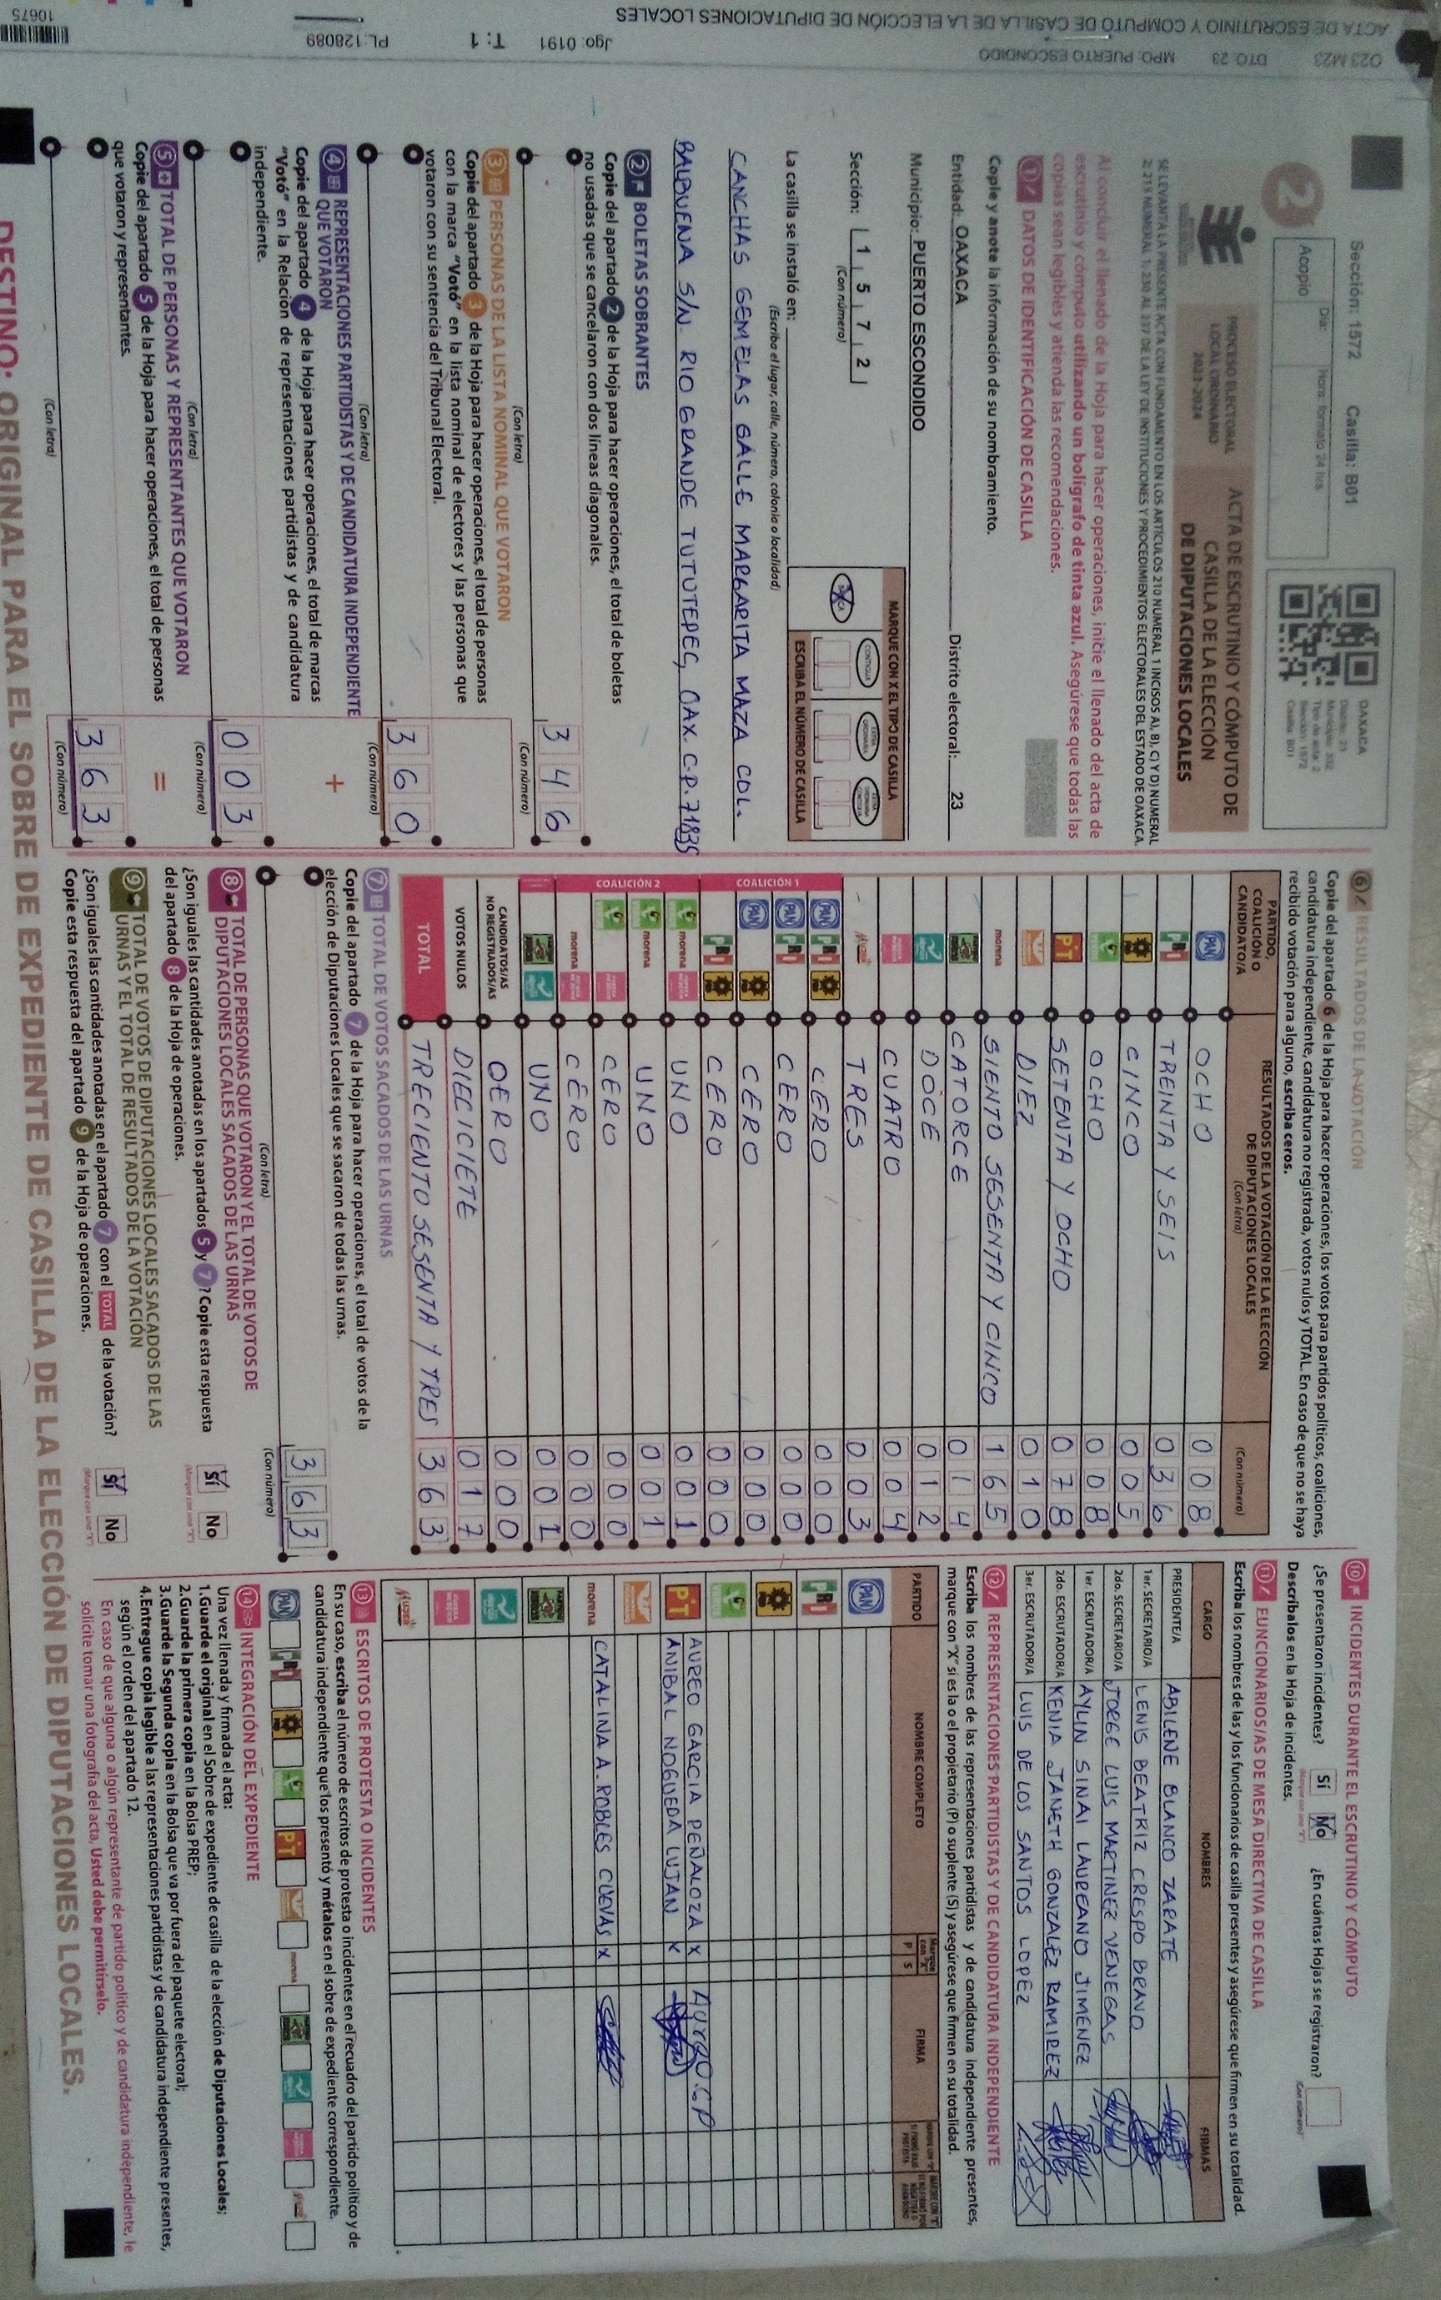 ACTA DE ESCRUTINIO Y CÓMPUTO DE CASILLA DE LA ELECCIÓN DE DIPUTACIONES LOCALES
O23 M23 DTO: 23 MPO: PUERTO ESCONDIDO Jgo: 0191 T: 1 PL:128089
10675
Sección: 1572 Casilla: B01
Día: Hora: formato 24 hrs
2 Acopio
OAXACA
Sección: 1572
Casilla: B01
PROCESO ELECTORAL
LOCAL ORDINARIO
2023-2024
ACTA DE ESCRUTINIO Y CÓMPUTO DE
CASILLA DE LA ELECCIÓN
DE DIPUTACIONES LOCALES
SE LEVANTA LA PRESENTE ACTA CON FUNDAMENTO EN LOS ARTÍCULOS 210 NUMERAL 1 INCISOS A), B), C) Y D) NUMERAL
2; 215 NUMERAL 1; 230 AL 237 DE LA LEY DE INSTITUCIONES Y PROCEDIMIENTOS ELECTORALES DEL ESTADO DE OAXACA.
Al concluir el llenado de la Hoja para hacer operaciones, inicie el llenado del acta de
escrutinio y cómputo utilizando un bolígrafo de tinta azul. Asegúrese que todas las
copias sean legibles y atienda las recomendaciones.
1 DATOS DE IDENTIFICACIÓN DE CASILLA
Copie y anote la información de su nombramiento.
Entidad: OAXACA Distrito electoral: 23
Municipio: PUERTO ESCONDIDO
Sección: 1 5 7 2
(Con número)
MARQUE CON X EL TIPO DE CASILLA
ESCRIBA EL NÚMERO DE CASILLA
La casilla se instaló en:
(Escriba el lugar, calle, número, colonia o localidad)
CANCHAS GEMELAS CALLE MARGARITA MAZA COL.
BALBUENA S/N. RIO GRANDE TUTUTEPEC, OAX. C.P. 71835
2 BOLETAS SOBRANTES
Copie del apartado 2 de la Hoja para hacer operaciones, el total de boletas
no usadas que se cancelaron con dos líneas diagonales.
3 4 6
(Con letra) (Con número)
3 PERSONAS DE LA LISTA NOMINAL QUE VOTARON
Copie del apartado 3 de la Hoja para hacer operaciones, el total de personas
con la marca "Votó" en la lista nominal de electores y las personas que
votaron con su sentencia del Tribunal Electoral.
3 6 0
(Con letra) (Con número)
4 REPRESENTACIONES PARTIDISTAS Y DE CANDIDATURA INDEPENDIENTE
QUE VOTARON
+
Copie del apartado 4 de la Hoja para hacer operaciones, el total de marcas
"Votó" en la Relación de representaciones partidistas y de candidatura
independiente.
0 0 3
(Con letra) (Con número)
5 TOTAL DE PERSONAS Y REPRESENTANTES QUE VOTARON
=
Copie del apartado 5 de la Hoja para hacer operaciones, el total de personas
que votaron y representantes.
3 6 3
(Con letra) (Con número)
6 RESULTADOS DE LA VOTACIÓN
Copie del apartado 6 de la Hoja para hacer operaciones, los votos para partidos políticos, coaliciones,
candidatura independiente, candidatura no registrada, votos nulos y TOTAL. En caso de que no se haya
recibido votación para alguno, escriba ceros.
PARTIDO, COALICIÓN O CANDIDATO/A
RESULTADOS DE LA VOTACIÓN DE LA ELECCIÓN DE DIPUTACIONES LOCALES
(Con letra) (Con número)
PAN OCHO 0 0 8
PRI TREINTA Y SEIS 0 3 6
PRD CINCO 0 0 5
OCHO 0 0 8
PT SETENTA Y OCHO 0 7 8
DIEZ 0 1 0
morena SIENTO SESENTA Y CINCO 1 6 5
CATORCE 0 1 4
DOCE 0 1 2
CUATRO 0 0 4
TRES 0 0 3
COALICIÓN 1
PAN PRI PRD CERO 0 0 0
PAN PRI CERO 0 0 0
PAN PRD CERO 0 0 0
PRI PRD CERO 0 0 0
COALICIÓN 2
morena UNO 0 0 1
morena UNO 0 0 1
CERO 0 0 0
morena CERO 0 0 0
UNO 0 0 1
CANDIDATOS/AS NO REGISTRADOS/AS CERO 0 0 0
VOTOS NULOS DIECICIETE 0 1 7
TOTAL TRECIENTO SESENTA Y TRES 3 6 3
7 TOTAL DE VOTOS SACADOS DE LAS URNAS
Copie del apartado 7 de la Hoja para hacer operaciones, el total de votos de la
elección de Diputaciones Locales que se sacaron de todas las urnas.
3 6 3
(Con letra) (Con número)
8 TOTAL DE PERSONAS QUE VOTARON Y EL TOTAL DE VOTOS DE
DIPUTACIONES LOCALES SACADOS DE LAS URNAS
¿Son iguales las cantidades anotadas en los apartados 5 y 7? Copie esta respuesta
del apartado 8 de la Hoja de operaciones.
Sí No
9 TOTAL DE VOTOS DE DIPUTACIONES LOCALES SACADOS DE LAS
URNAS Y EL TOTAL DE RESULTADOS DE LA VOTACIÓN
¿Son iguales las cantidades anotadas en el apartado 7 con el TOTAL de la votación?
Copie esta respuesta del apartado 9 de la Hoja de operaciones.
Sí No
10 INCIDENTES DURANTE EL ESCRUTINIO Y CÓMPUTO
¿Se presentaron incidentes? Sí No ¿En cuántas Hojas se registraron?
Descríbalos en la Hoja de incidentes.
11 FUNCIONARIOS/AS DE MESA DIRECTIVA DE CASILLA
Escriba los nombres de las y los funcionarios de casilla presentes y asegúrese que firmen en su totalidad.
CARGO NOMBRES FIRMAS
PRESIDENTE/A ABILENE BLANCO ZARATE
1er. SECRETARIO/A LENIS BEATRIZ CRESPO BRAVO
2do. SECRETARIO/A JORGE LUIS MARTINEZ VENEGAS
1er. ESCRUTADOR/A AYLIN SINAI LAUREANO JIMENEZ
2do. ESCRUTADOR/A KENIA JANETH GONZALEZ RAMIREZ
3er. ESCRUTADOR/A LUIS DE LOS SANTOS LOPEZ
12 REPRESENTACIONES PARTIDISTAS Y DE CANDIDATURA INDEPENDIENTE
Escriba los nombres de las representaciones partidistas y de candidatura independiente presentes,
marque con "X" si es la o el propietario (P) o suplente (S) y asegúrese que firmen en su totalidad.
PARTIDO NOMBRE COMPLETO P S FIRMA
PAN
PRI
PRD
AUREO GARCIA PEÑALOZA X Aureo.G P
PT ANIBAL NOGUEDA LUJAN X
morena CATALINA A. ROBLES CUEVAS X
13 ESCRITOS DE PROTESTA O INCIDENTES
En su caso, escriba el número de escritos de protesta o incidentes en el recuadro del partido político y de
candidatura independiente que los presentó y métalos en el sobre de expediente correspondiente.
PAN PRI PRD PT morena
14 INTEGRACIÓN DEL EXPEDIENTE
Una vez llenada y firmada el acta:
1.Guarde el original en el Sobre de expediente de casilla de la elección de Diputaciones Locales;
2.Guarde la primera copia en la Bolsa PREP;
3.Guarde la Segunda copia en la Bolsa que va por fuera del paquete electoral;
4.Entregue copia legible a las representaciones partidistas y de candidatura independiente presentes,
según el orden del apartado 12.
En caso de que alguna o algún representante de partido político y de candidatura independiente, le
solicite tomar una fotografía del acta, Usted debe permitírselo.
DESTINO: ORIGINAL PARA EL SOBRE DE EXPEDIENTE DE CASILLA DE LA ELECCIÓN DE DIPUTACIONES LOCALES.